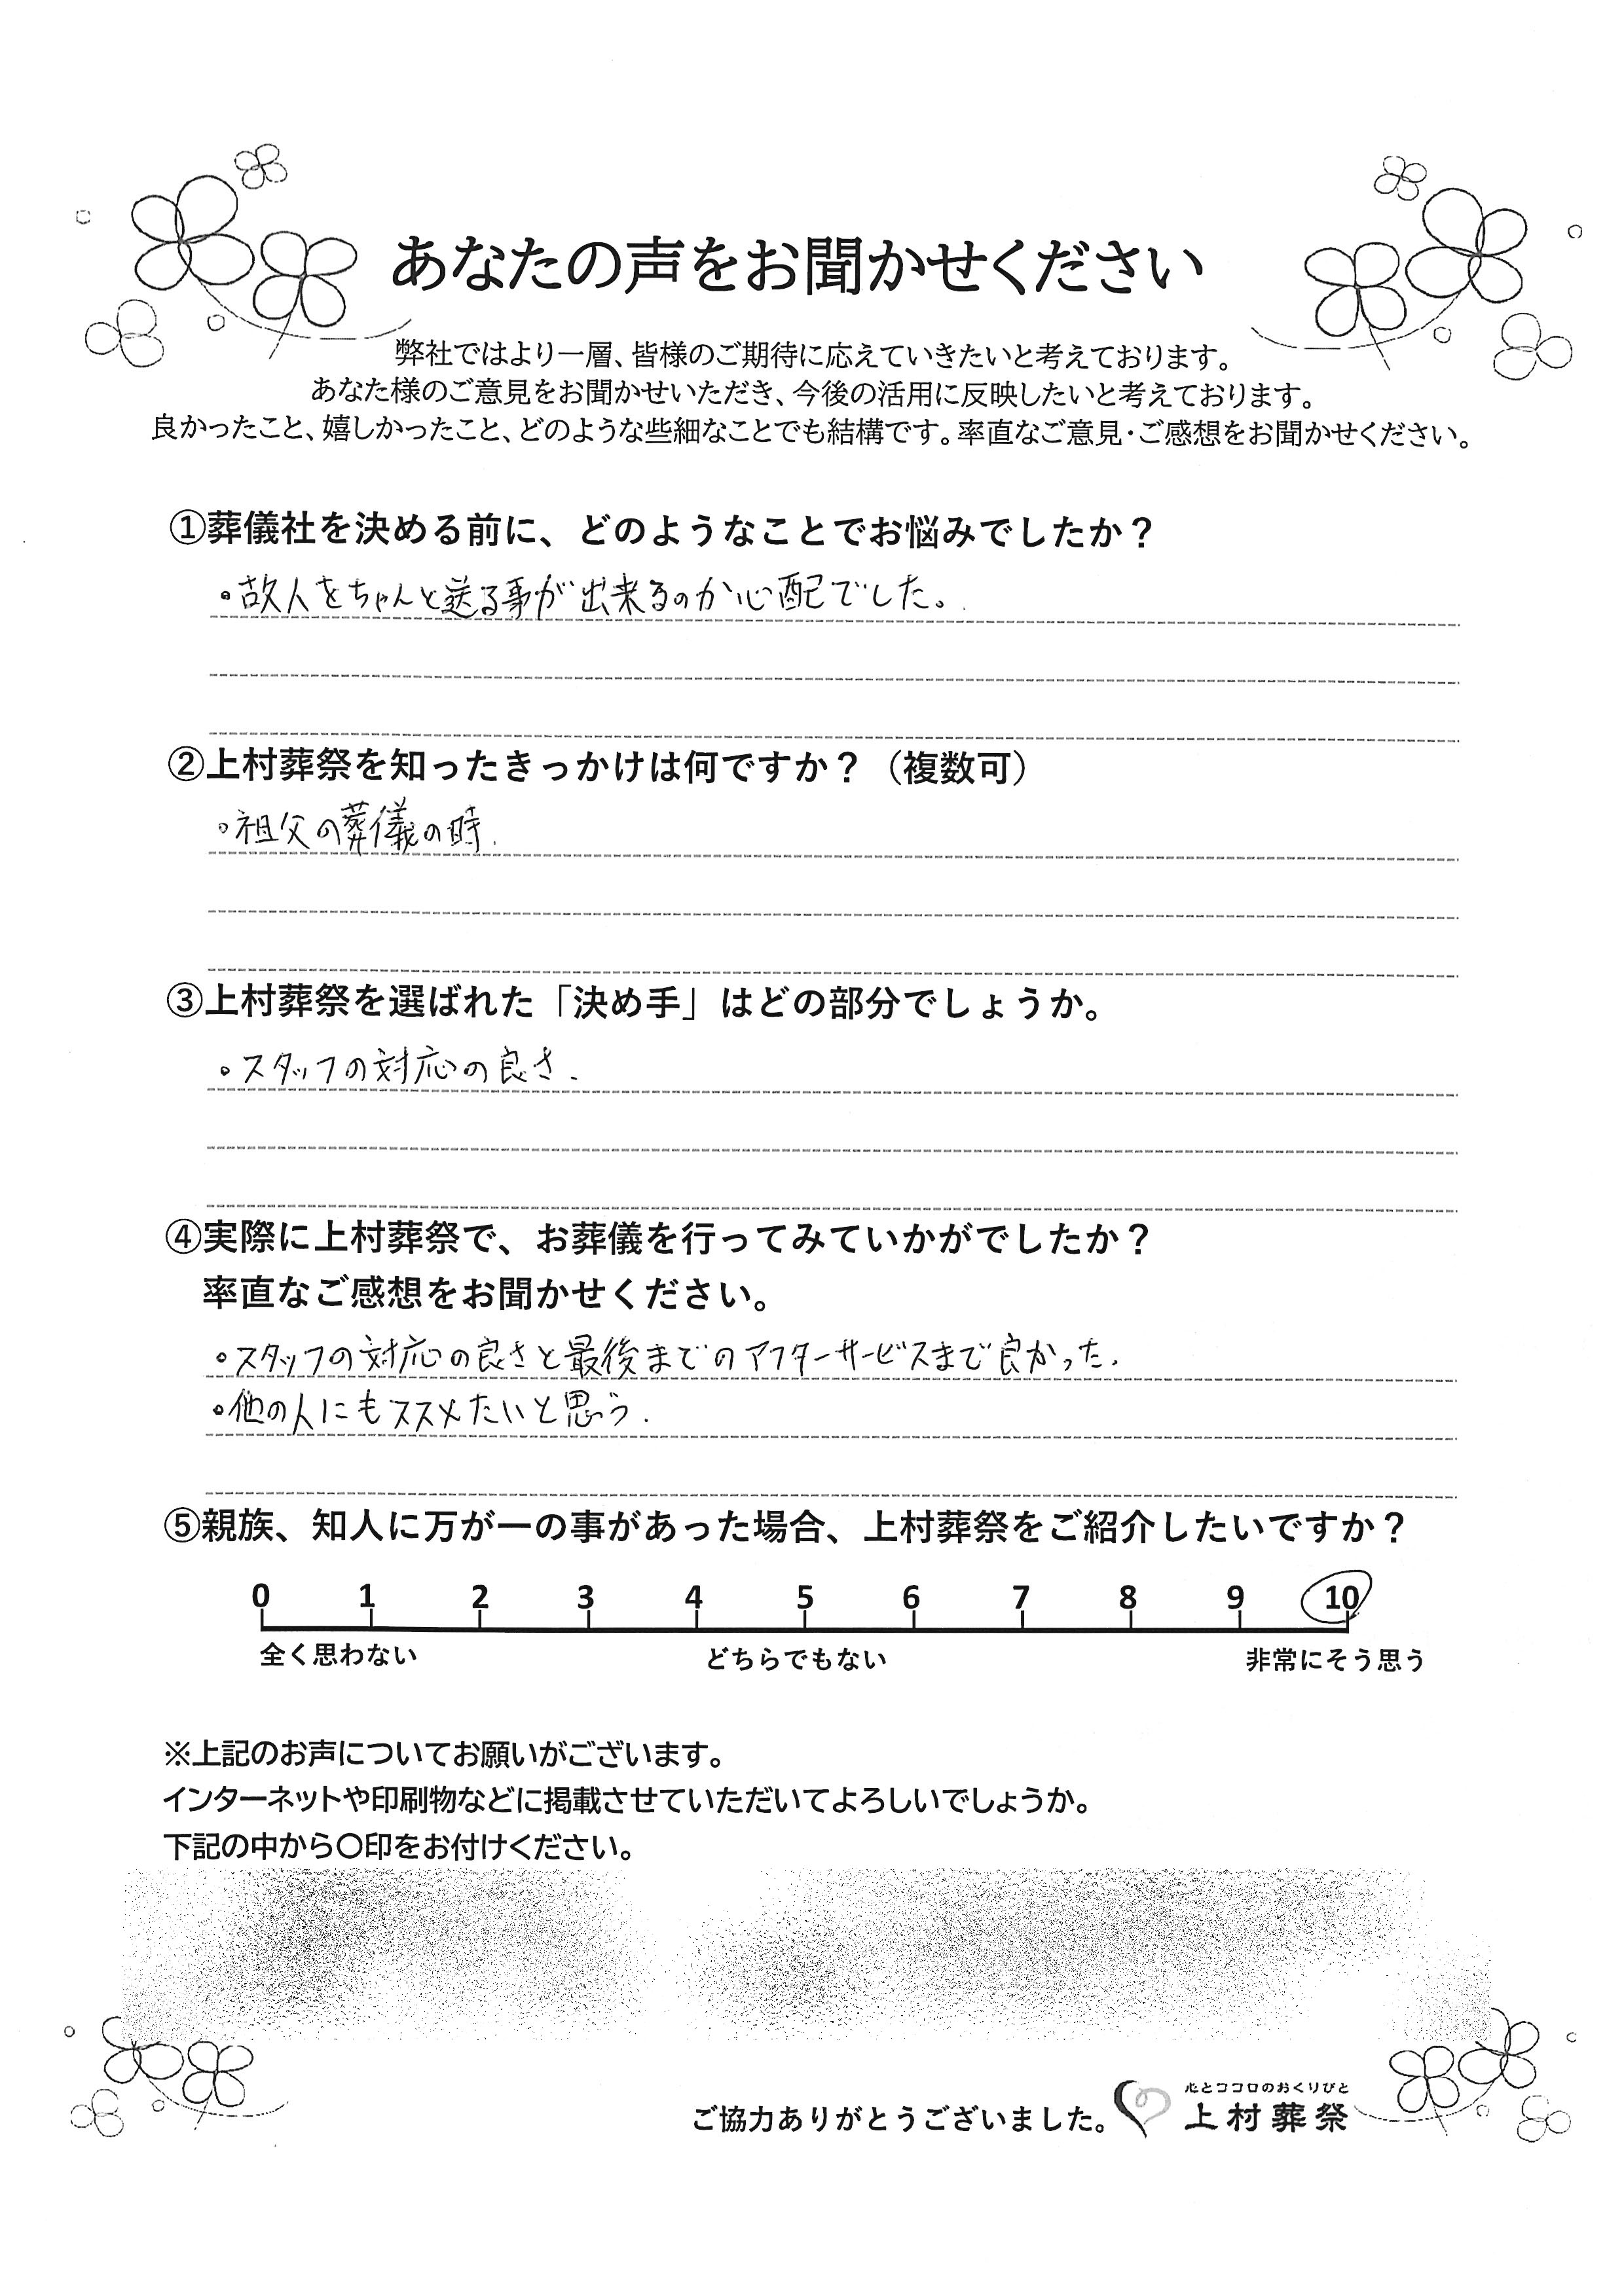 あなたの声をお聞かせください
弊社ではより一層、皆様のご期待に応えていきたいと考えております。
あなた様のご意見をお聞かせいただき、今後の活用に反映したいと考えております。
良かったこと、嬉しかったこと、どのような些細なことでも結構です。率直なご意見・ご感想をお聞かせください。
①葬儀社を決める前に、どのようなことでお悩みでしたか？
・故人をちゃんと送る事が出来るのか心配でした。
②上村葬祭を知ったきっかけは何ですか？（複数可）
・祖父の葬儀の時.
③上村葬祭を選ばれた「決め手」はどの部分でしょうか。
・スタッフの対応の良さ.
④実際に上村葬祭で、お葬儀を行ってみていかがでしたか？
率直なご感想をお聞かせください。
・スタッフの対応の良さと最後までのアフターサービスまで良かった.
・他の人にもススメたいと思う.
⑤親族、知人に万が一の事があった場合、上村葬祭をご紹介したいですか？
0 1 2 3 4 5 6 7 8 9 10
全く思わない どちらでもない 非常にそう思う
※上記のお声についてお願いがございます。
インターネットや印刷物などに掲載させていただいてよろしいでしょうか。
下記の中から〇印をお付けください。
心とココロのおくりびと
ご協力ありがとうございました。 上村葬祭